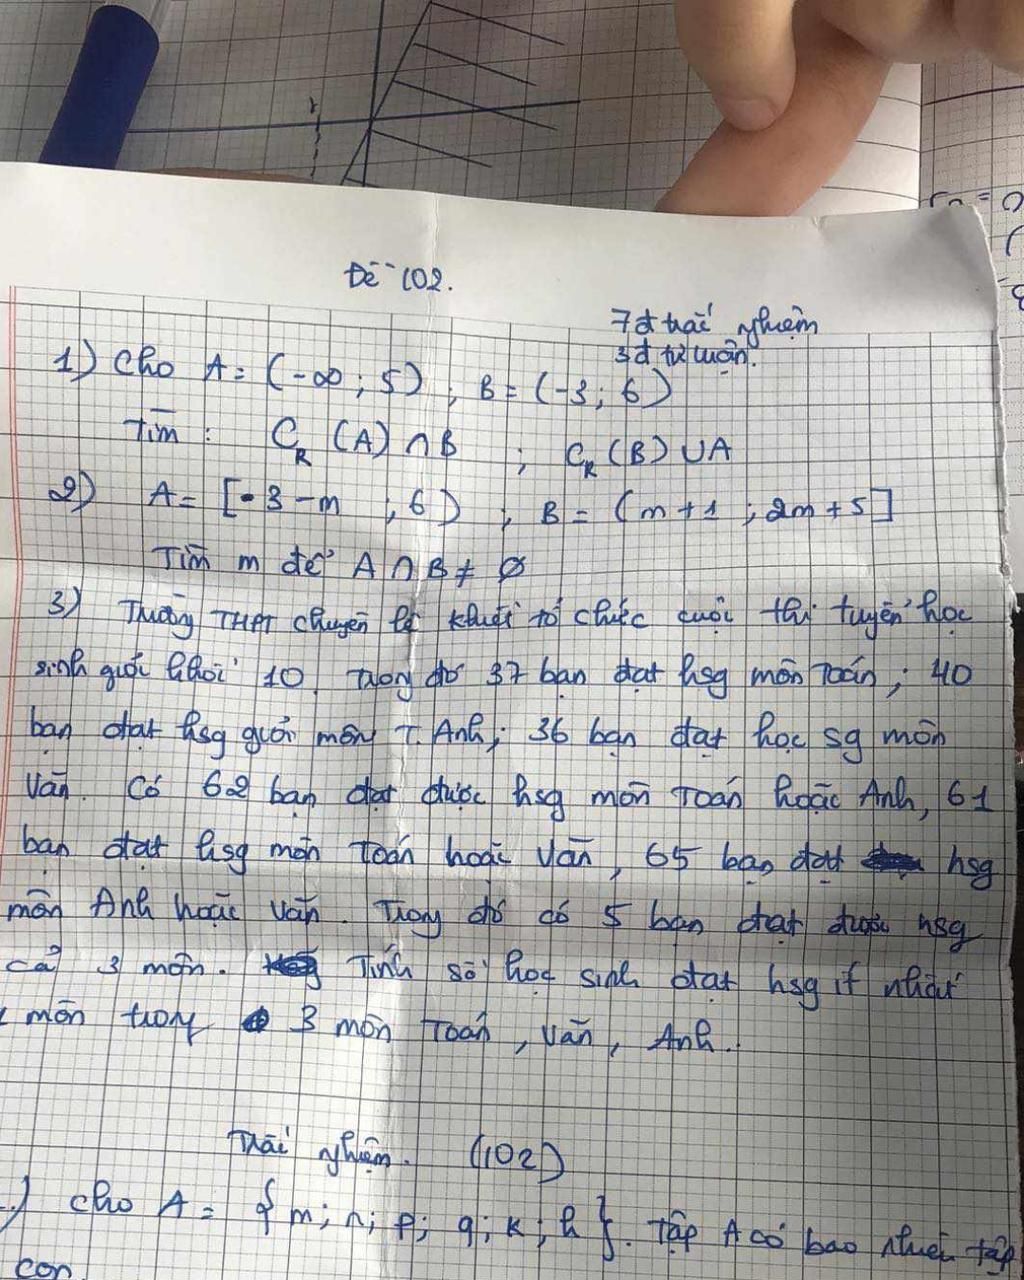 Đề 102.
7đ trắc nghiệm
3đ tự luận.
1) Cho A = (-∞ ; 5) , B = (-3 ; 6)
Tìm : C_R (A) ∩ B ; C_R (B) ∪ A
2) A = [-3-m ; 6) , B = (m+1 ; 2m+5]
Tìm m để A ∩ B ≠ ∅
3) Trường THPT chuyên lê khiết tổ chức cuộc thi tuyển học
sinh giỏi khối 10. Trong đó 37 bạn đạt hsg môn Toán ; 40
bạn đạt hsg giỏi môn T. Anh ; 36 bạn đạt học sg môn
Văn. Có 62 bạn đạt được hsg môn Toán hoặc Anh, 61
bạn đạt hsg môn Toán hoặc Văn, 65 bạn đạt hsg
môn Anh hoặc Văn. Trong đó có 5 bạn đạt được hsg
cả 3 môn. Tính số học sinh đạt hsg ít nhất
môn trong 3 môn Toán, Văn, Anh.
Trắc nghiệm. (102)
) Cho A = { m ; n ; p ; q ; k ; h }. Tập A có bao nhiêu tập
con